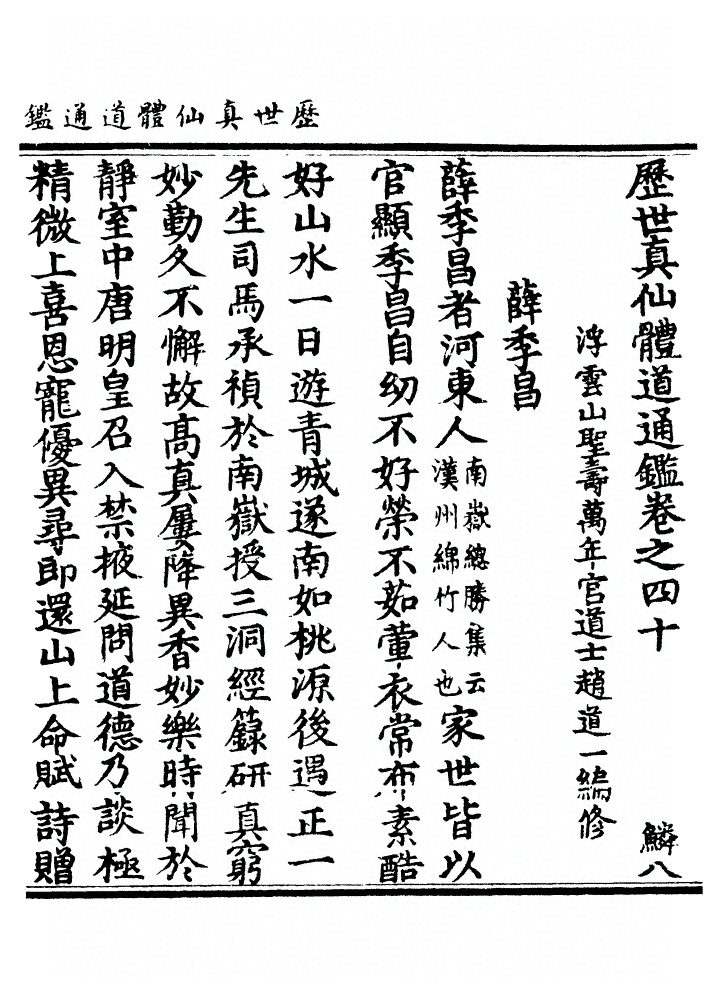 歷世真仙體道通鑑
歷世真仙體道通鑑卷之四十 鱗八
浮雲山聖壽萬年宮道士趙道一編修
薛季昌
薛季昌者河東人南嶽總勝集云漢州綿竹人也家世皆以
官顯季昌自幼不好榮不茹葷衣常布素酷
好山水一日遊青城遂南如桃源後遇正一
先生司馬承禎於南嶽授三洞經籙研真窮
妙勤久不懈故高真屢降異香妙樂時聞於
靜室中唐明皇召入禁掖延問道德乃談極
精微上喜恩寵優異尋即還山上命賦詩贈